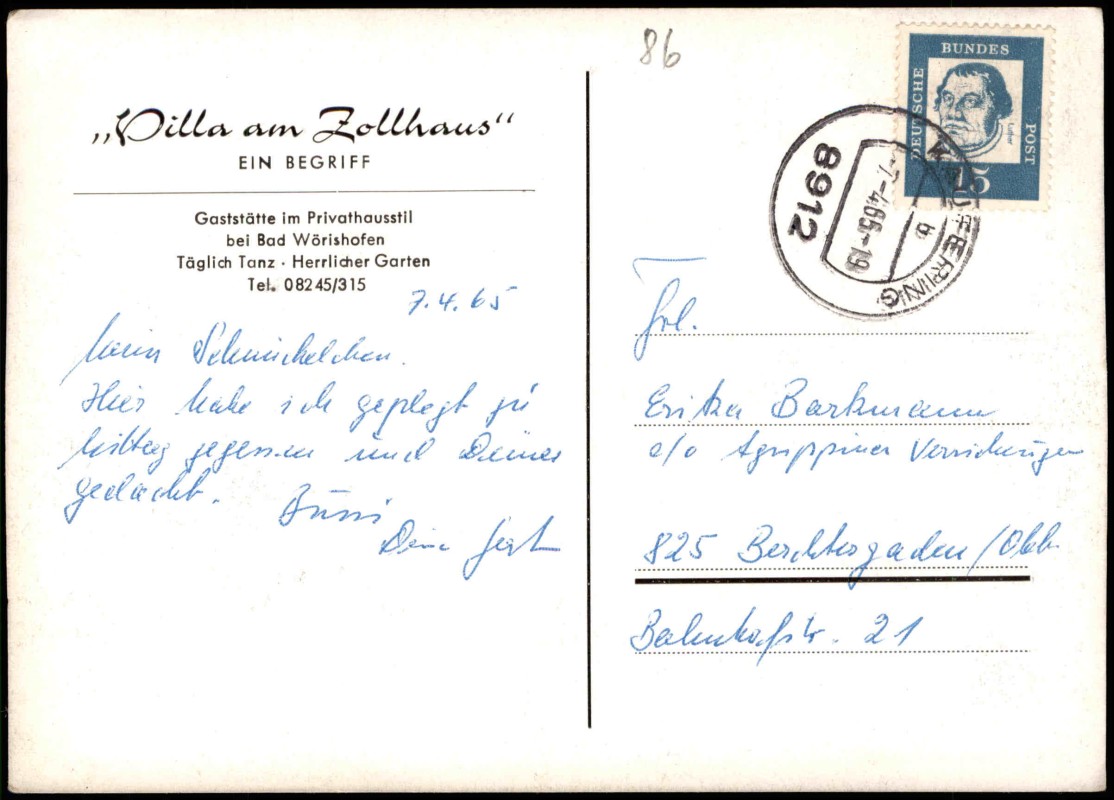 „Villa am Zollhaus“
EIN BEGRIFF
Gaststätte im Privathausstil
bei Bad Wörishofen
Täglich Tanz · Herrlicher Garten
Tel. 08245/315
7.4.65
Mein Schnuckelchen.
Hier habe ich gepflegt zu
Mittag gegessen und Deiner
gedacht.
Bussi
Dein Gert
86
DEUTSCHE BUNDES POST
Luther
15
8912 KAUFERING
b
-7.-4.65-19
Frl.
Erika Barkmann
c/o Agrippina Versicherungen
825 Berchtesgaden/Obb.
Bahnhofstr. 21